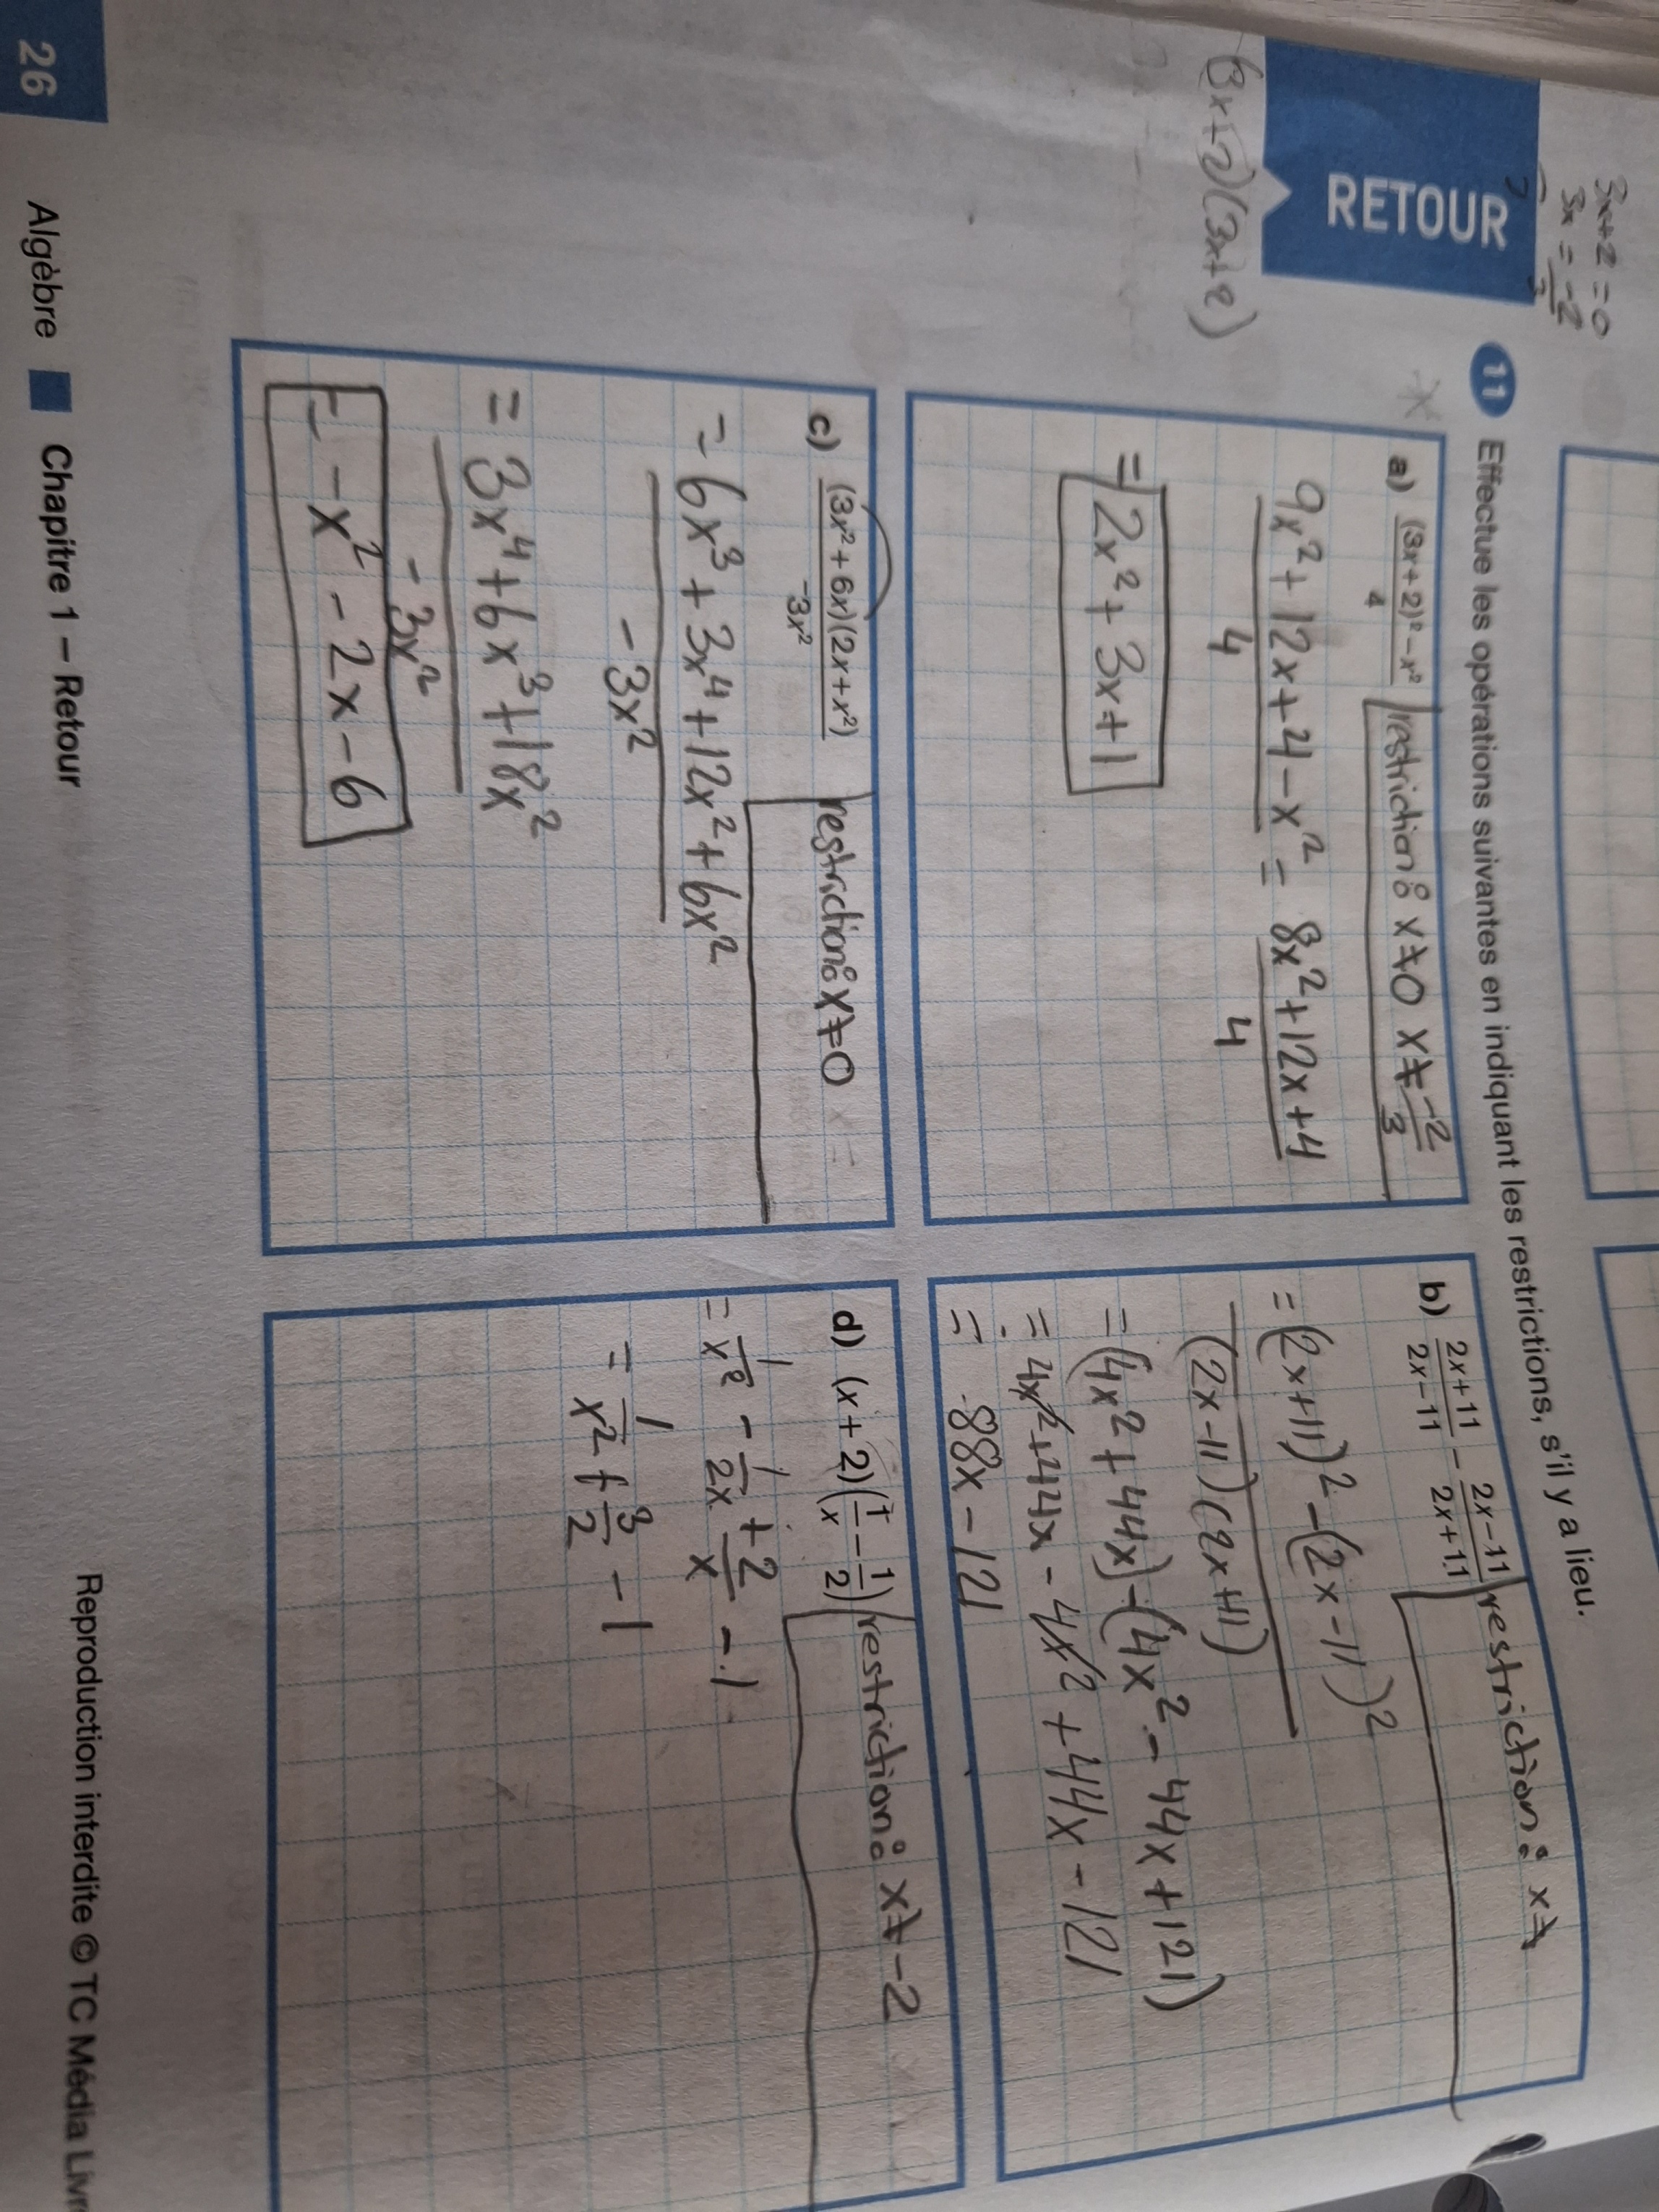 3x+2=0
3x = -2
3
RETOUR
(3x+2)(3x+2)
11 Effectue les opérations suivantes en indiquant les restrictions, s'il y a lieu.
a) (3x+2)² - x² / 4
restriction: x≠0 x≠ -2/3
9x² + 12x + 4 - x² / 4 = 8x² + 12x + 4 / 4
= 2x² + 3x + 1
b) 2x+11 / 2x-11 - 2x-11 / 2x+11
restriction: x≠
= (2x+11)² - (2x-11)²
(2x-11)(2x+11)
= (4x² + 44x) - (4x² - 44x + 121)
= 4x² + 44x - 4x² + 44x - 121
= 88x - 121
c) (3x² + 6x)(2x + x²) / -3x²
restriction: x≠0
= 6x³ + 3x⁴ + 12x² + 6x²
- 3x²
= 3x⁴ + 6x³ + 18x²
- 3x²
= - x² - 2x - 6
d) (x + 2)(1/x - 1/2)
restriction: x≠-2
= 1/x² - 1/2x + 2/x - 1
= 1/x² + 3/2 - 1
26 Algèbre Chapitre 1 – Retour
Reproduction interdite © TC Média